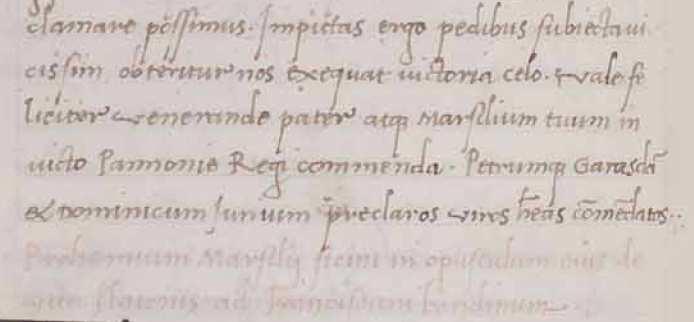 clamare possimus. Impietas ergo pedibus subiecta ui
cissim obteritur nos exequat uictoria celo. vale fe
liciter venerande pater atq Marsilium tuum in
uicto Pannonie Regi commenda. Petrumq Garasdā
et Dominicum Iunium preclaros viros hēas cōmēdatos.
Prohemium Marsilij ficini in opusculum eius de
ad franciscum bandinum